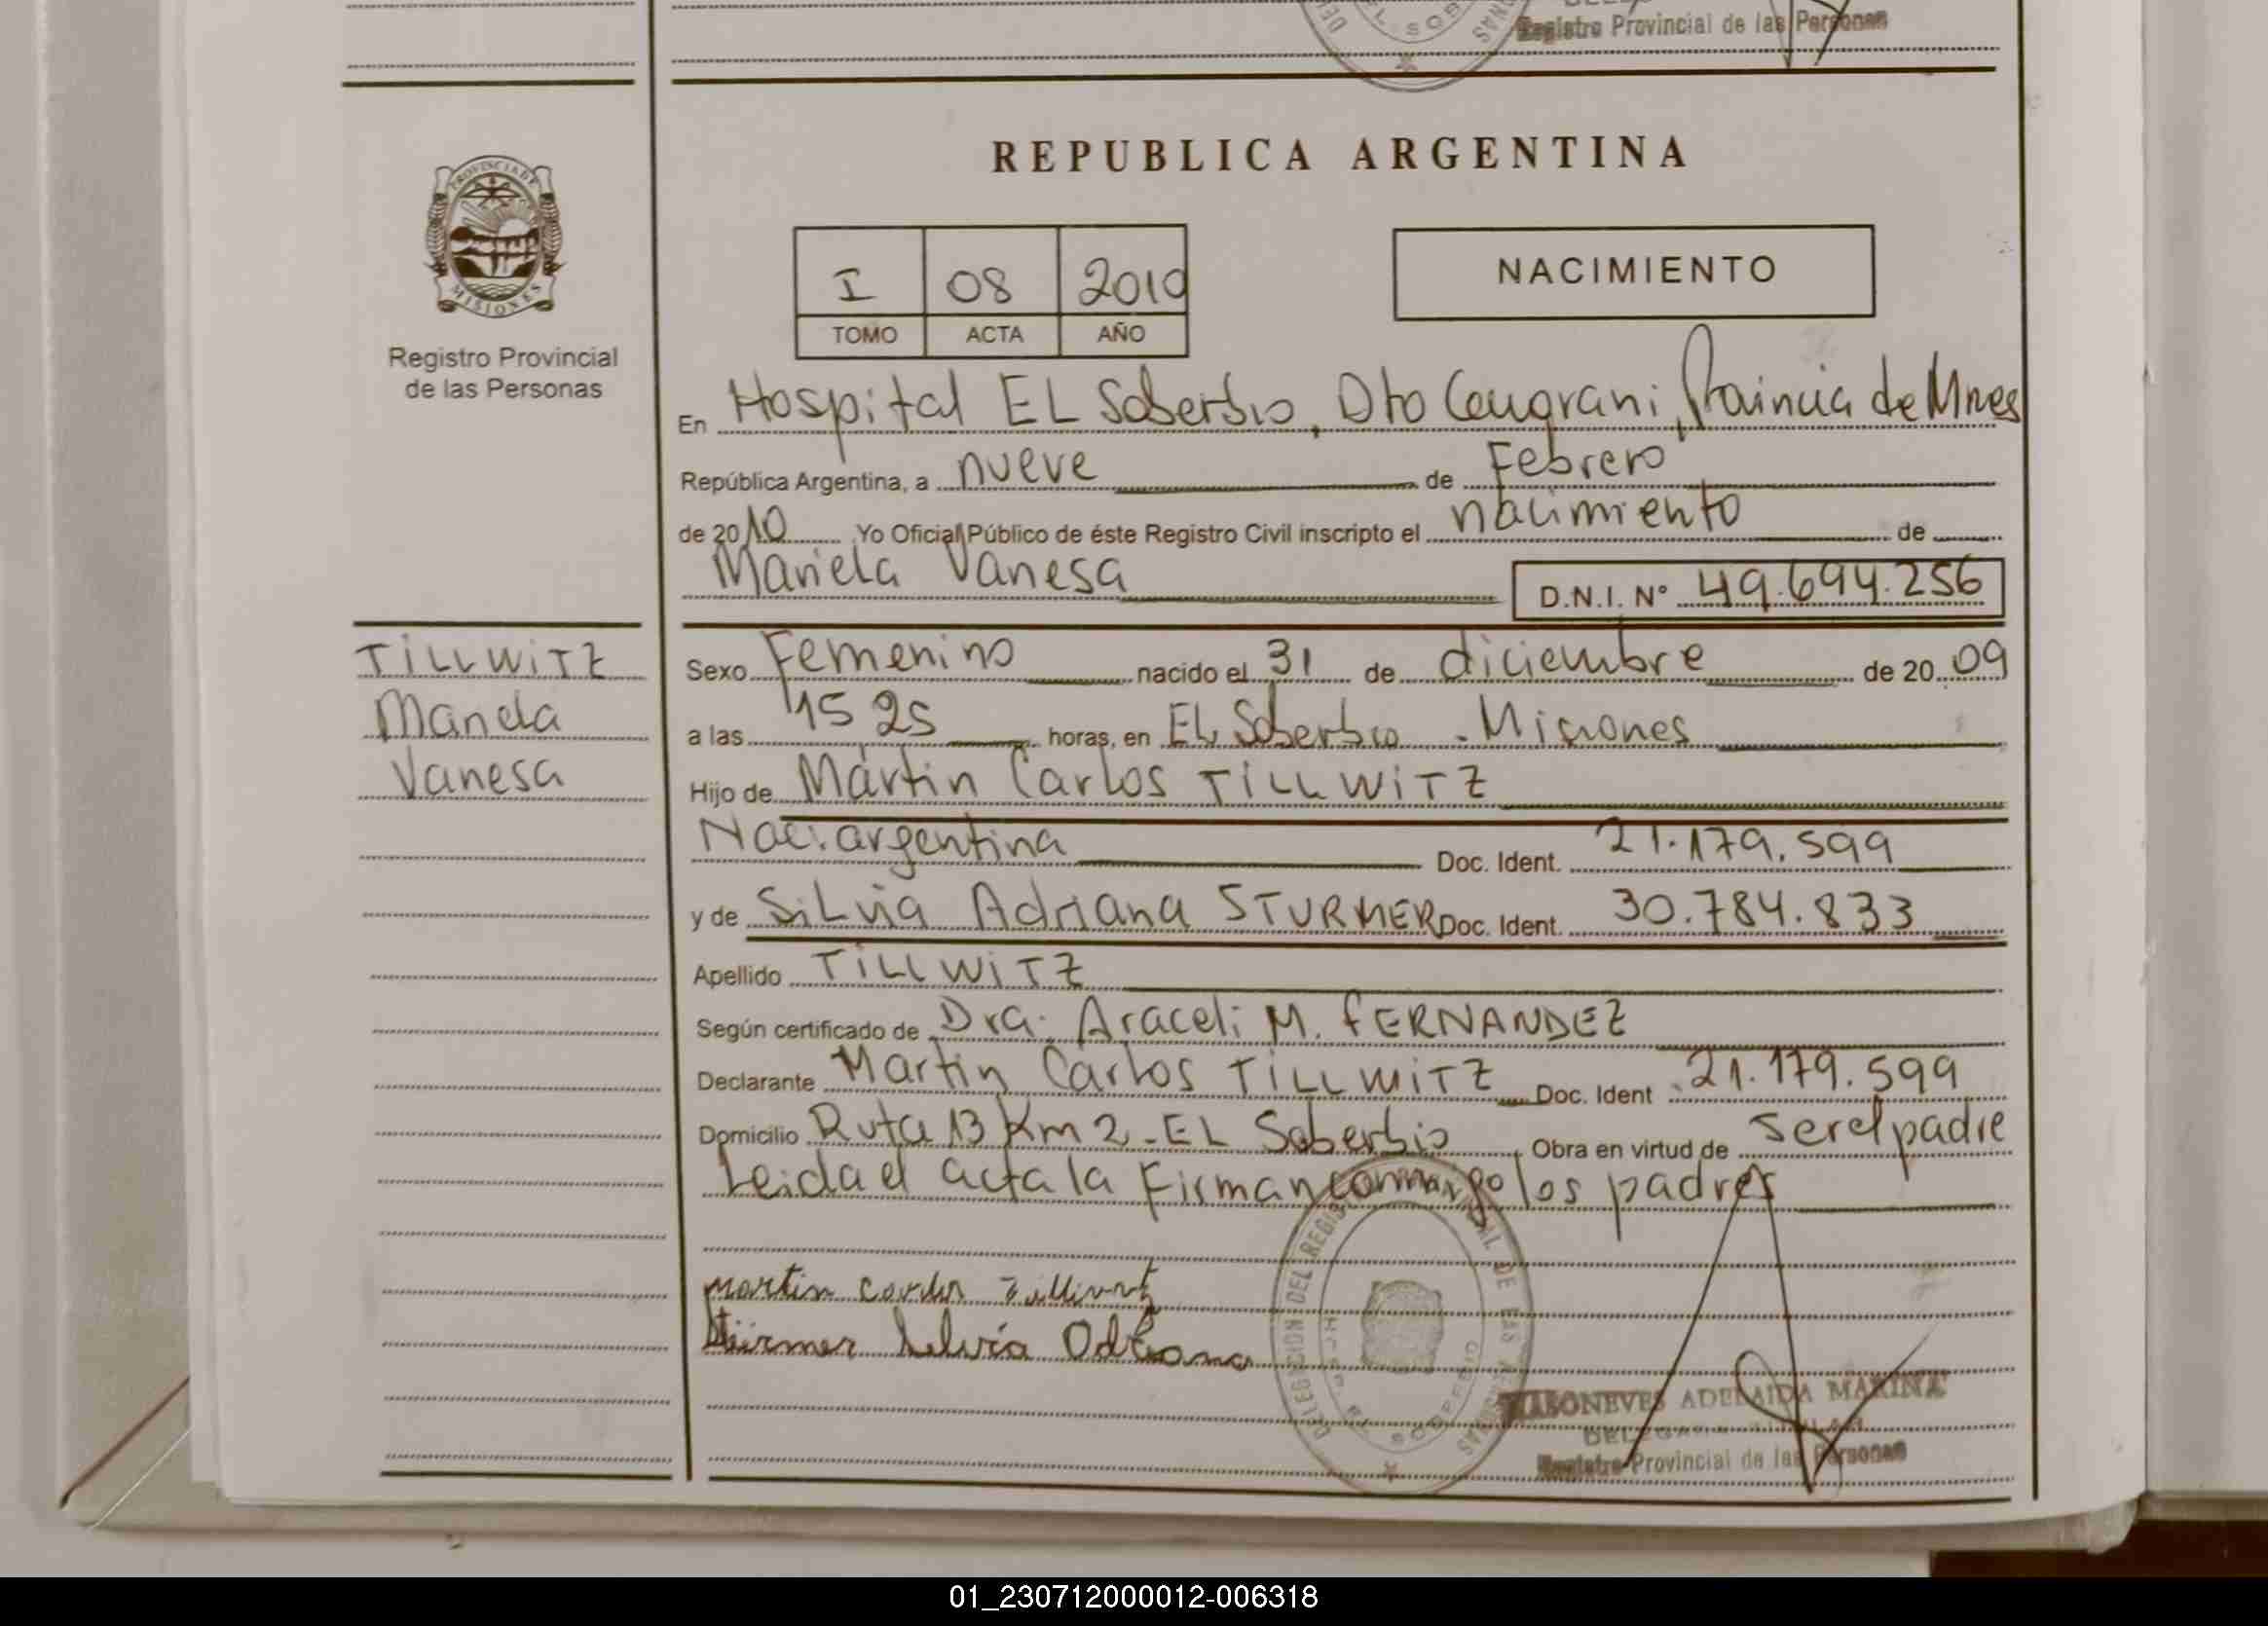 Registro Provincial de las Personas
REPUBLICA ARGENTINA
PROVINCIA DE
MISIONES
Registro Provincial
de las Personas
I 08 2010
TOMO ACTA AÑO
NACIMIENTO
En Hospital EL Soberbio, Dto Caugrani, Provincia de Mnes
República Argentina, a nueve de Febrero
de 2010 Yo Oficial Público de éste Registro Civil inscripto el nacimiento de
Mariela Vanesa D.N.I. Nº 49.694.256
TILLWITZ
Mariela
Vanesa
Sexo Femenino nacido el 31 de diciembre de 2009
a las 15 25 horas, en EL Soberbio - Misiones
Hijo de Martin Carlos TILLWITZ
Nac. argentina Doc. Ident. 21.179.599
y de Silvia Adriana STURMER Doc. Ident. 30.784.833
Apellido TILLWITZ
Según certificado de Dra. Araceli M. FERNANDEZ
Declarante Martin Carlos TILLWITZ Doc. Ident 21.179.599
Domicilio Ruta 13 Km 2 - EL Soberbio Obra en virtud de ser el padre
Leida el acta la firman conmigo los padres
Martin Carlos
Stürmer Silvia Adriana
DELEGACION DEL REGISTRO PROVINCIAL DE LAS PERSONAS
EL SOBERBIO
ADELAIDA MARINA
Registro Provincial de las Personas
01_230712000012-006318